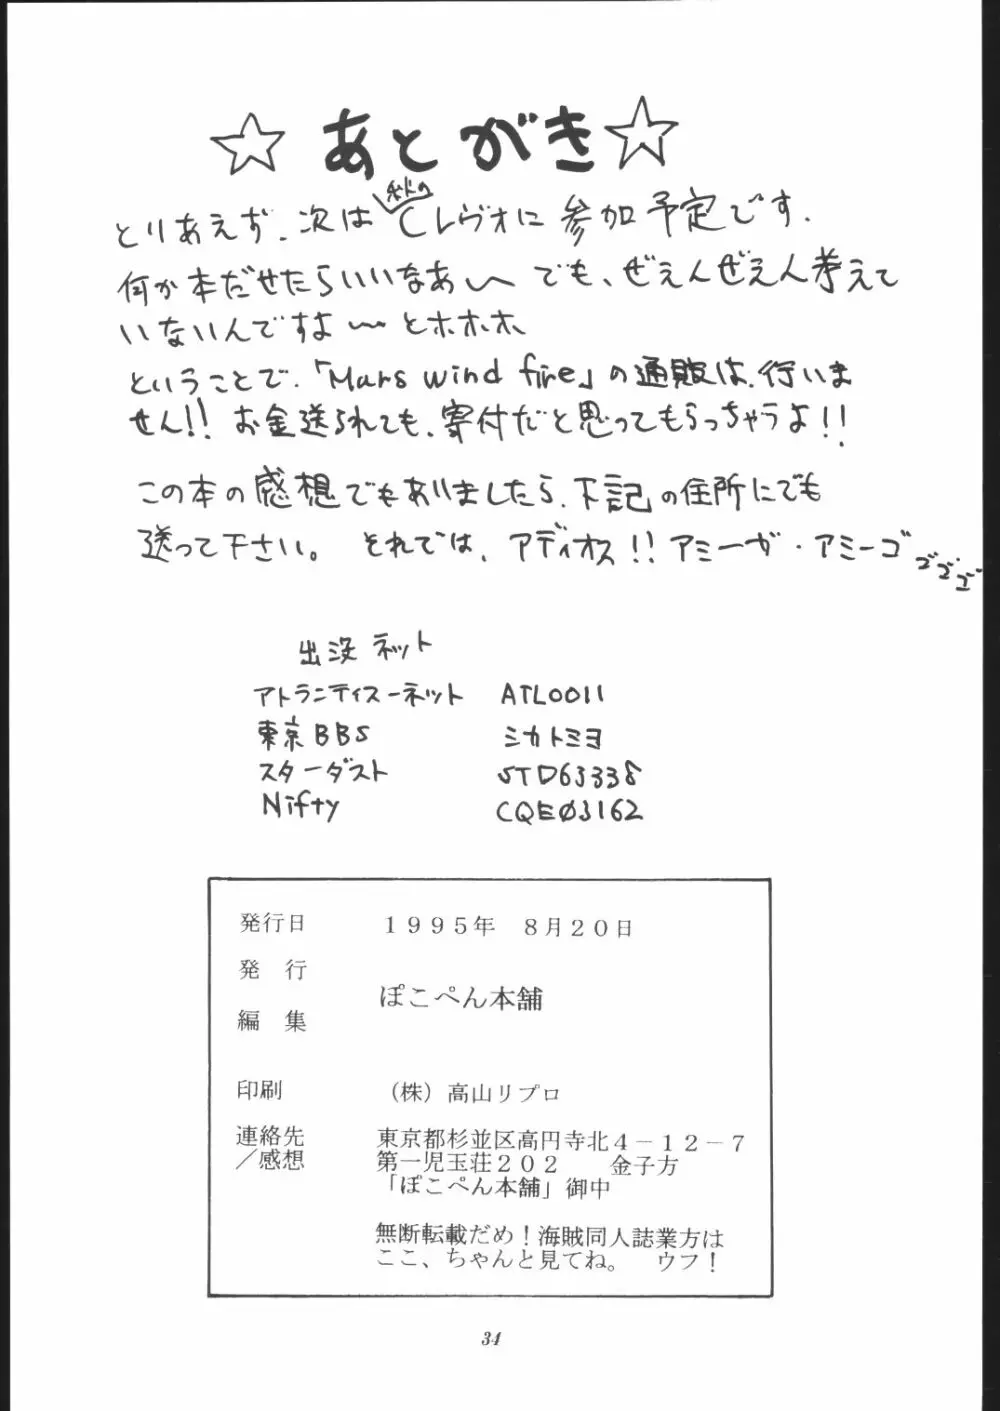 ☆ あとがき ☆
とりあえず、次は秋のCレヴォに参加予定です.
何か本だせたらいいなあ〜 でも、ぜえんぜえん考えて
いないんですよ〜 とホホホ
ということで、「Mars wind fire」の通販は、行いま
せん!! お金送られても、寄付だと思ってもらっちゃうよ!!
この本の感想でもありましたら、下記の住所にでも
送って下さい。 それでは、アディオス!! アミーガ・アミーゴゴゴゴ
出没ネット
アトランティス-ネット ATL0011
東京BBS シカトミヨ
スターダスト STD63338
Nifty CQE03162
発行日 1995年 8月20日
発 行
ぽこぺん本舗
編 集
印刷 (株)高山リプロ
連絡先 東京都杉並区高円寺北4-12-7
/感想 第一児玉荘202 金子方
「ぽこぺん本舗」御中
無断転載だめ!海賊同人誌業方は
ここ、ちゃんと見てね。 ウフ!
34